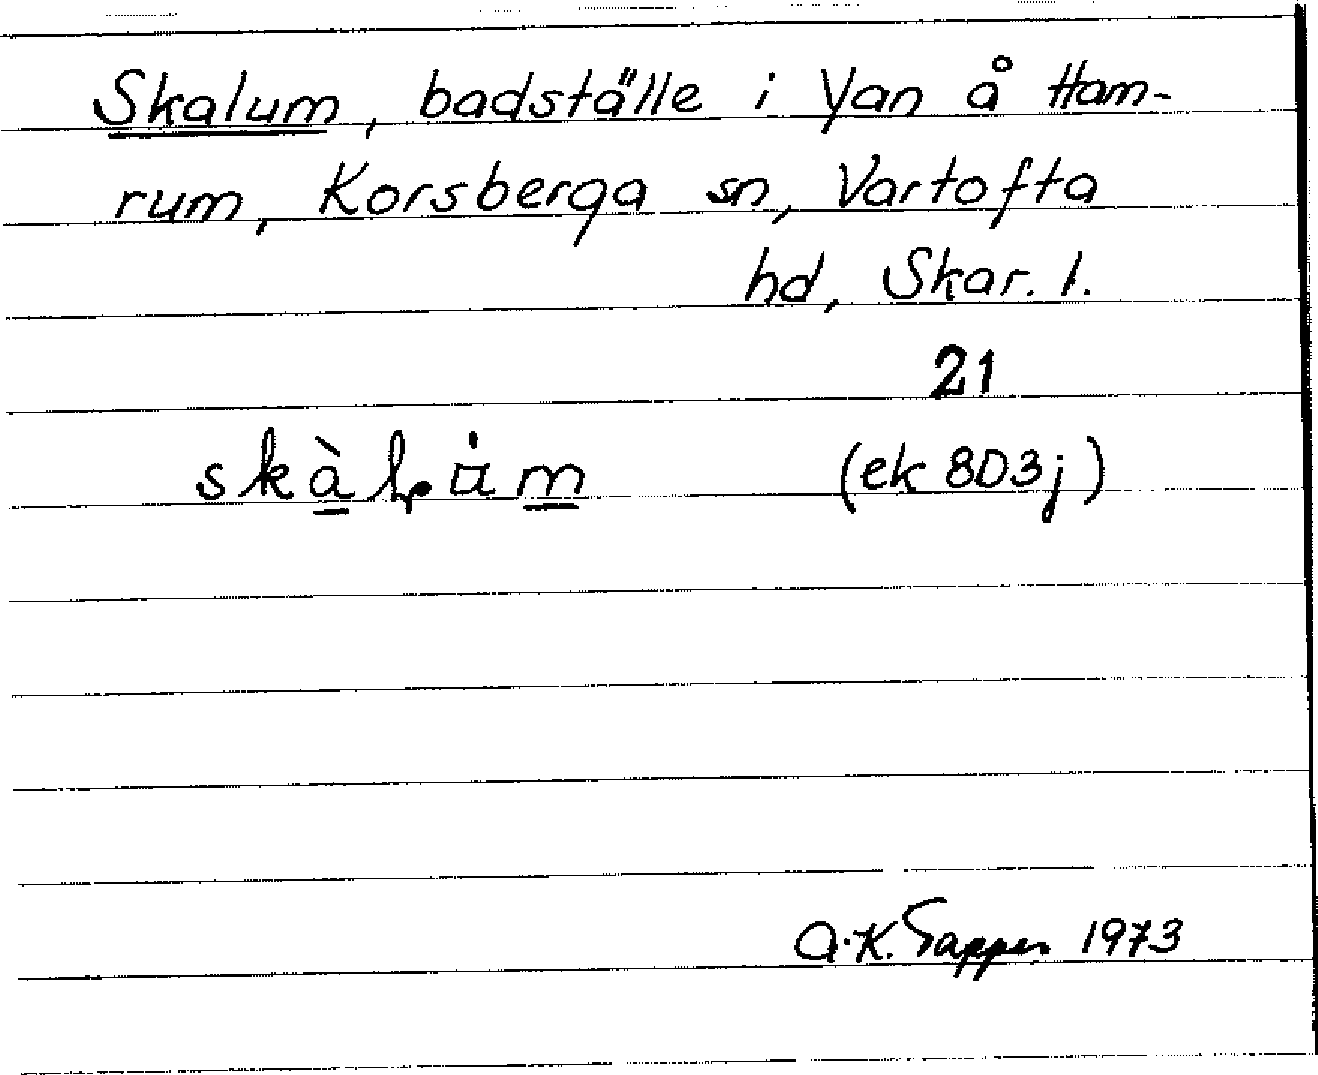 Skalum, badställe i Yan å Ham-
rum, Korsberga sn, Vartofta
hd, Skar. l.
21
(ek 8D3j)
A.K. 1973